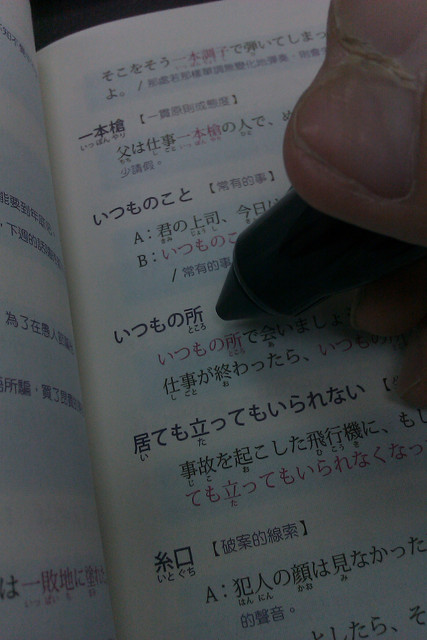 そこをそう一本調子で弾いてしまっ
よ。/ 那處若那樣單調無變化地彈奏,則會
一本槍【一貫原則或態度】
いっぽんやり
父は仕事一本槍の人で、め
少請假。
いつものこと【常有的事】
A：君の上司、今日
B：いつものこ
/ 常有的事
いつもの所
ところ
いつもの所で会いましょ
仕事が終わったら、いつもの
居ても立ってもいられない【
事故を起こした飛行機に、もし
ても立ってもいられなくなっ
糸口【破案的線索】
いとぐち
A：犯人の顔は見なかった
はんにん かお み
的聲音。
としたら、そ
為了在愚人節
所騙，買了
は一敗地に塗れ